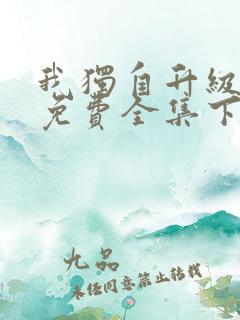 我獨自升級
免費全集下
九品
未经同意禁止转载